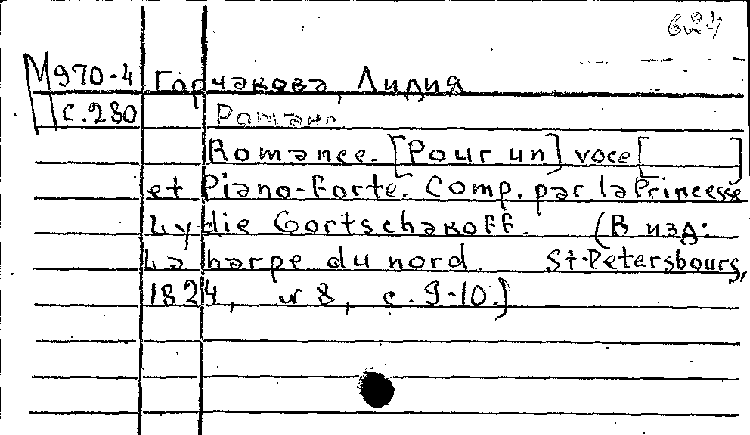 М970-4 Горчакова, Лидия
с.280 Романс
Romance. [Pour un] voce [ ]
et Piano-Forte. Comp. par la Princesse
Lydie Gortschakoff. (В изд:
La harpe du nord. St-Petersbourg,
1824, № 8, с. 9-10.)